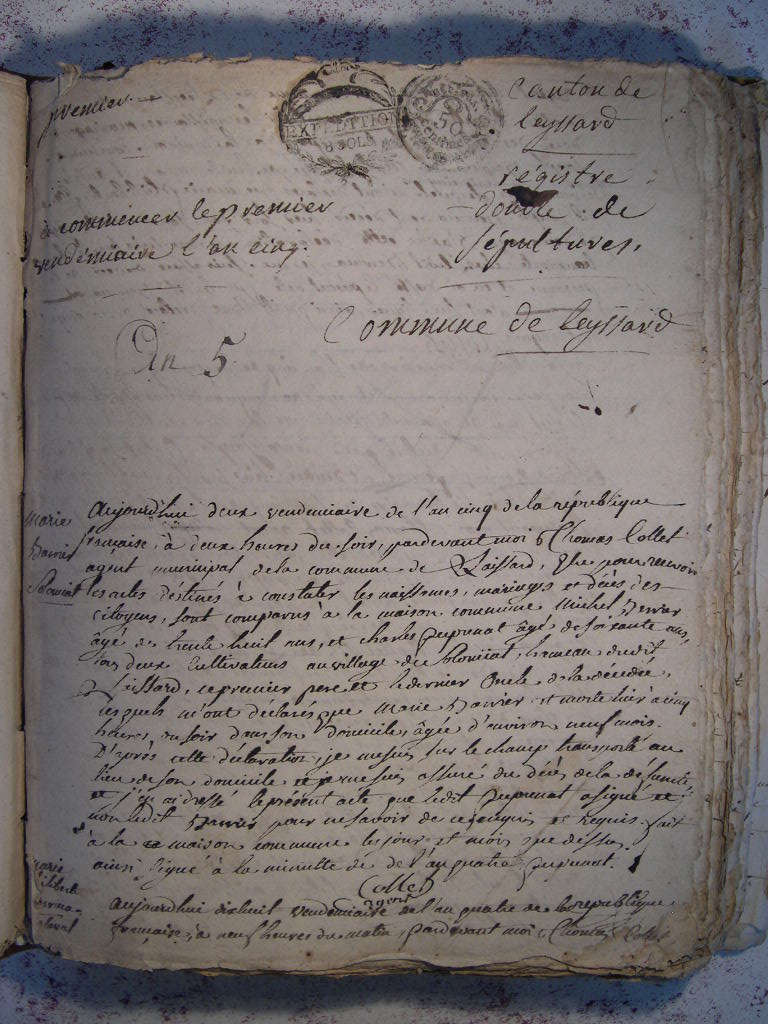 premier.
EXPEDITION
8 SOLS
50
centimes
Canton de
leyssard
régistre
double de
sépultures.
à commencer le premier
vendémiaire l'an cinq.
Commune de leyssard
An 5
Marie
aujourdhui deux vendemiaire de l'an cinq de la république
française, à deux heures du soir, pardevant moi Thomas Collet
agent municipal de la commune de Laissard, Elu pour recevoir
les actes déstinés à constater les naissances, mariages et décès des
citoyens, sont comparus à la maison commune Michel
âgé de trente huit ans, et charles âgé de soixante ans,
tous deux Cultivateurs au village de hameau dudit
Laissard, le premier pere et le dernier Oncle de la décédée,
lesquels m'ont déclarés que Marie est morte hier à cinq
heures du soir dans son domicile, âgée d'environ neuf mois.
D'après cette déclaration, je me suis sur le champ transporté au
lieu de son domicile je me suis assuré du décès de la défunte
et j'en ai dressé le présent acte que ledit a signé et
non ledit pour ne savoir de ce enquis et requis. fait
à la maison commune les jour et mois que dessus.
ainsi signé à la minutte de l'an quatre
Collet
agent
Marie
aujourdhui dixhuit vendemiaire de l'an quatre de la republique
française, à neuf heures du matin, pardevant moi Thomas Collet